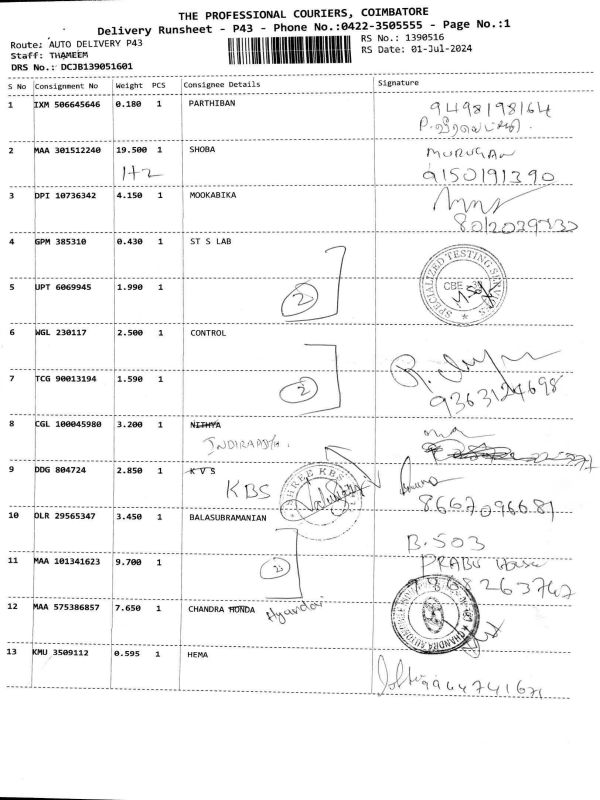 THE PROFESSIONAL COURIERS, COIMBATORE
Delivery Runsheet - P43 - Phone No.:0422-3505555 - Page No.:1
Route: AUTO DELIVERY P43
RS No.: 1390516
Staff: THAMEEM
RS Date: 01-Jul-2024
DRS No.: DCJB139051601
S No Consignment No Weight PCS Consignee Details Signature
1 IXM 506645646 0.180 1 PARTHIBAN 9498198164
2 MAA 301512240 19.500 1 SHOBA MURUGAN
1+2 9150191390
3 DPI 10736342 4.150 1 MOOKABIKA
4 GPM 385310 0.430 1 ST S LAB
SPECIALIZED TESTING SERVICES
CBE
5 UPT 6069945 1.990 1
2
6 WGL 230117 2.500 1 CONTROL
7 TCG 90013194 1.590 1
2 9363124698
8 CGL 100045980 3.200 1 NITHYA
9 DDG 804724 2.850 1 K V S
KBS SHREE KBS 8667096681
10 OLR 29565347 3.450 1 BALASUBRAMANIAN
B.503
11 MAA 101341623 9.700 1 PRABU
12 MAA 575386857 7.650 1 CHANDRA HONDA Hyundai
13 KMU 3509112 0.595 1 HEMA